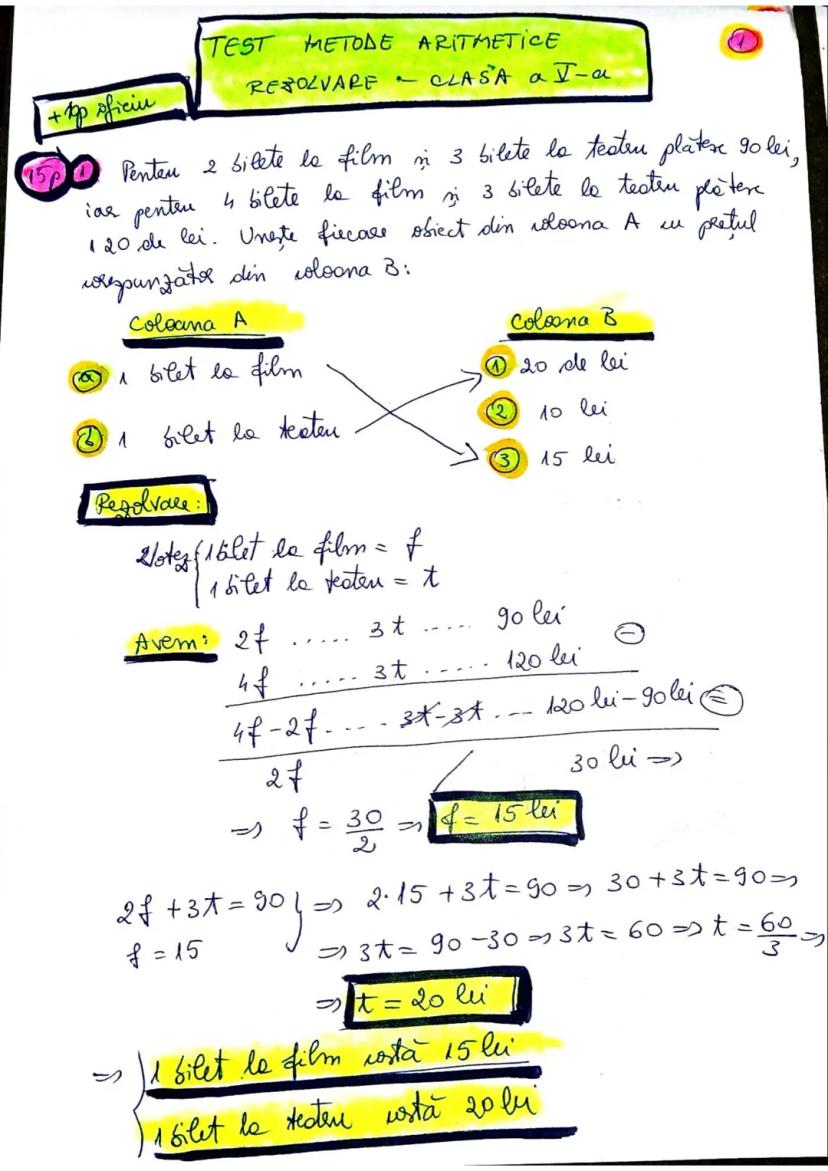 TEST METODE ARITMETICE
REZOLVARE - CLASA a V-a
1
+ 10p oficiu
15p 1 Pentru 2 bilete la film și 3 bilete la teatru plătesc 90 lei,
iar pentru 4 bilete la film și 3 bilete la teatru plătesc
120 de lei. Unește fiecare obiect din coloana A cu prețul
corespunzător din coloana B:
Coloana A Coloana B
a 1 bilet la film 1 20 de lei
2 10 lei
b 1 bilet la teatru
3 15 lei
Rezolvare:
Notez { 1 bilet la film = f
1 bilet la teatru = t
Avem: 2f ...... 3t ..... 90 lei
4f ...... 3t ...... 120 lei (-)
4f-2f.... 3t-3t.... 120 lei-90lei (=)
2f / 30 lei =>
=> f = 30/2 => f = 15 lei
2f + 3t = 90 } => 2·15 + 3t = 90 => 30 + 3t = 90 =>
f = 15 => 3t = 90 - 30 => 3t = 60 => t = 60/3 =>
=> t = 20 lei
=> { 1 bilet la film costă 15 lei
1 bilet la teatru costă 20 lei